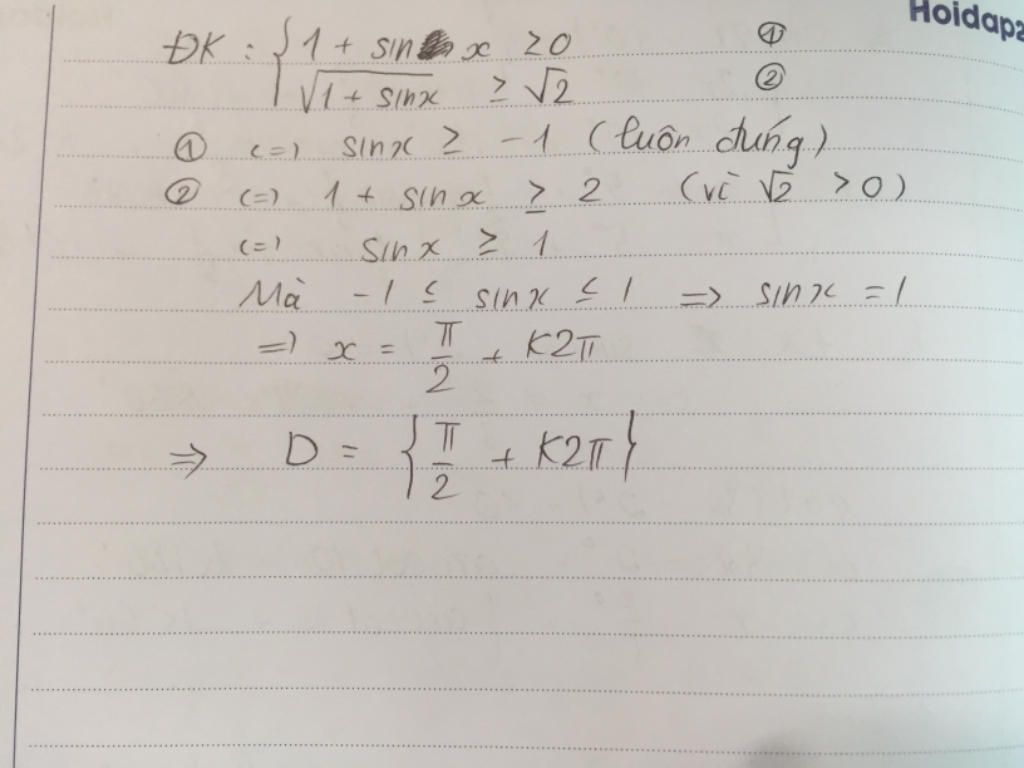 Hoidap2
ĐK : { 1 + sin x ≥ 0 ①
√1 + sinx ≥ √2 ②
① (=) sinx ≥ -1 (luôn đúng)
② (=) 1 + sinx ≥ 2 (vì √2 > 0)
(=) sinx ≥ 1
Mà -1 ≤ sinx ≤ 1 => sinx = 1
=) x = π/2 + K2π
=> D = {π/2 + K2π}